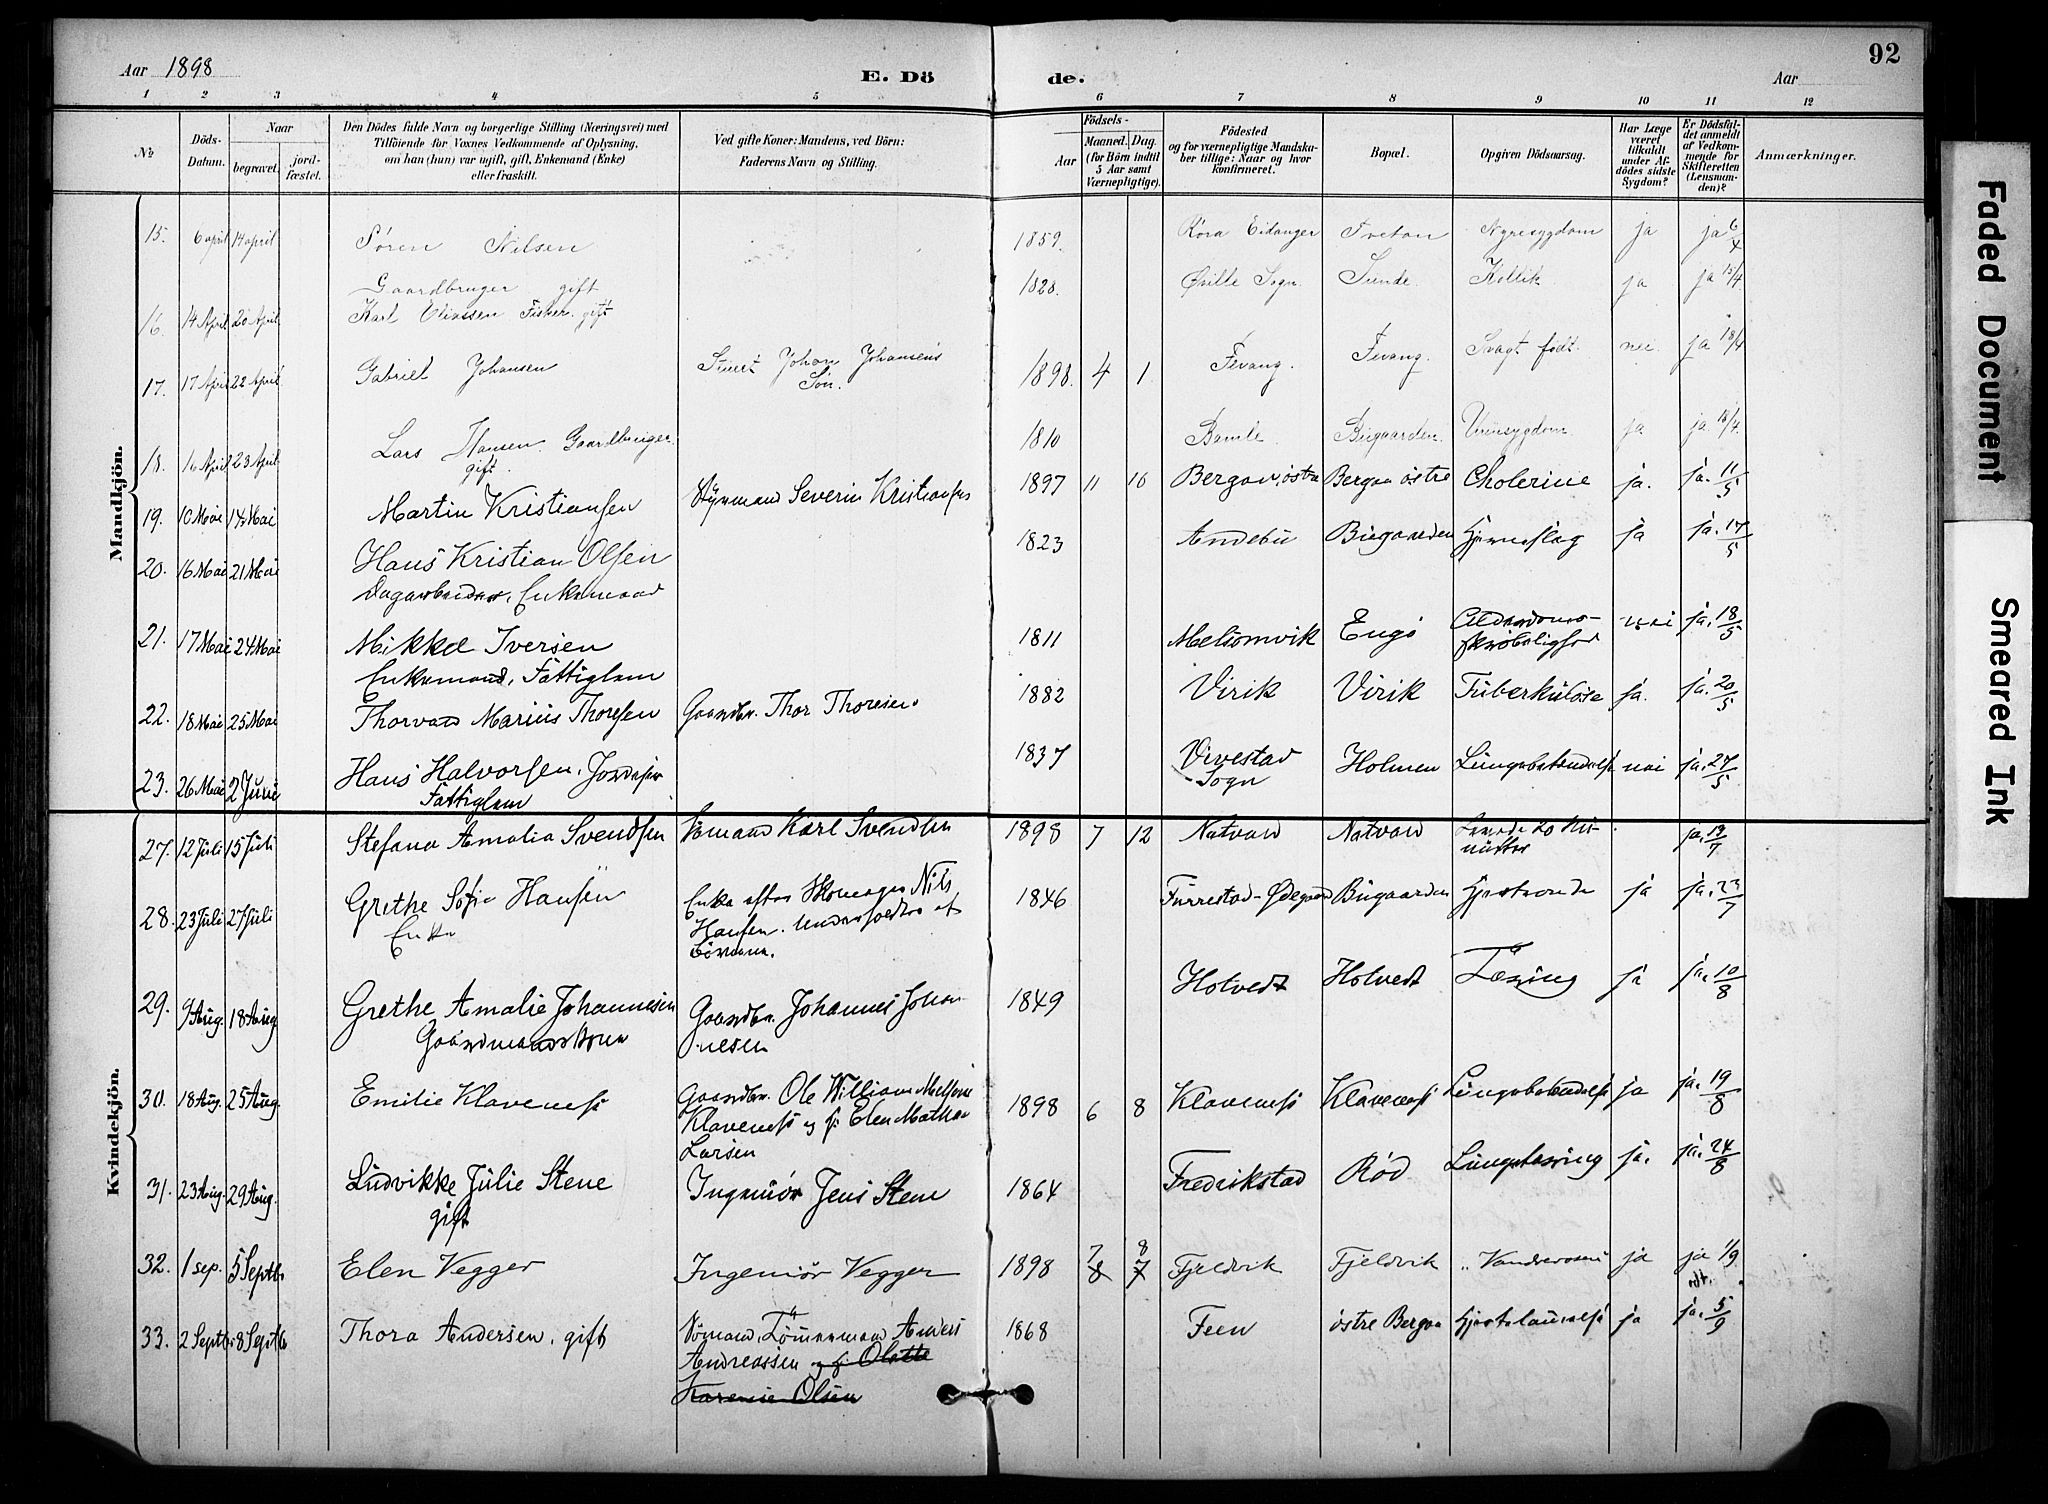 92
Aar 1898
E. Dö de.
Aar
1 2 3 4 5 6 7 8 9 10 11 12
No.
Döds-Datum.
Naar
begravet.
jord-fæstet.
Den Dödes fulde Navn og borgerlige Stilling (Næringsvei) med
Tilföiende for Voxnes Vedkommende af Oplysning,
om han (hun) var ugift, gift, Enkemand (Enke)
eller fraskilt.
Ved gifte Koner: Mandens, ved Börn:
Faderens Navn og Stilling.
Födsels-
Aar
Maaned. Dag.
(for Börn indtil
5 Aar samt
Værnepligtige).
Födested
og for værnepligtige Mandska-
ber tillige: Naar og hvor
konfirmeret.
Bopæl.
Opgiven Dödsaarsag.
Har Læge
været
tilkaldt
under Af-
dödes sidste
Sygdom?
Er Dödsfal-
det anmeldt
af Vedkom-
mende for
Skifteretten
(Lensman-
den)?
Anmærkninger.
Mandkjön.
15. 6 april 14 april Søren Nilsen 1859. Eidanger Tveten Nyresygdom ja ja 6/4
Gaardbruger gift
16. 14 April 20 April Karl Eliassen Fisker. gift 1828. Sogn. Sunde. Kollik ja ja 15/4
17. 17 April 22 April Gabriel Johansen Johan Johansens Søn. 1898. 4 1 Fevang. Fevang. Svagt født. nei. ja 18/4
18. 16 April 23 April Lars Hansen. Gaardbruger. 1810 Bamle Bugaarden. Urinsygdom ja ja 18/4
gift.
19. 10 Mai 14 Mai Martin Kristiansen Styrmand Severin Kristiansen 1897 11 10 Bergan, östre Bergan östre Cholerine ja. ja. 11/5
20. 16 Mai 21 Mai Hans Kristian Olsen 1823 Andebu Bugaarden Hjerneslag ja ja. 17/5
Dagarbeider, Enkemand
21. 17 Mai 24 Mai Mikkel Iversen 1811 Melsomvik Engö Alderdoms-skröbelighed nei ja. 18/5
Enkemand, Fattiglem
22. 18 Mai 25 Mai Thorvald Marius Thoresen Gaardbr. Thor Thoresen. 1882 Virik Virik Tuberkulose ja. ja. 20/5
23. 26 Mai 2 Juni Hans Halvorsen. 1837 Vivestad Sogn Holmen Lungebetændelse nei ja. 27/5
Fattiglem
Kvindekjön.
27. 12 Juli 15 Juli Stefana Amalia Svendsen Sömand Karl Svendsen 1898 7 12 Natvald Natvald Levede 20 Minutter ja. 13/7
28. 23 Juli 27 Juli Grethe Sofie Hansen Enke efter Skomager Nils 1846 Furrestad-Ødegaard Bugaarden Hjertevonde ja ja. 23/7
Enke Hansen. Understöttes af
Börnene.
29. 9 Aug. 18 Aug Grethe Amalie Johannesen Gaardbr. Johannes Johan 1849 Hotvedt Hotvedt Tæring ja ja. 10/8
Gaardmandskone nesen
30. 18 Aug. 25 Aug. Emilie Klaveness Gaardbr. Ole William 1898 6 8 Klaveness Klaveness Lungebetændelse ja ja. 19/8
Klaveness og h. Elen Mathea
Larsen
31. 23 Aug. 29 Aug. Ludvikke Julie Stene Ingeniör Jens Stene 1864 Fredrikstad Röd Lungetæring ja. ja. 24/8
gift
32. 1 sep. 5 Septb Elen Vegger Ingeniör Vegger 1898 7 8 8 7 Fjeldvik Fjeldvik ja ja 1/9
33. 2 Septb. 8 Septb Thora Andersen, gift Sömand, Tömmermand Anders 1868 Feen östre Bergan Hjertelammelse ja ja. 5/9
Andreassen og h. Olette
Karenie Olsen
Faded Document
Smeared Ink